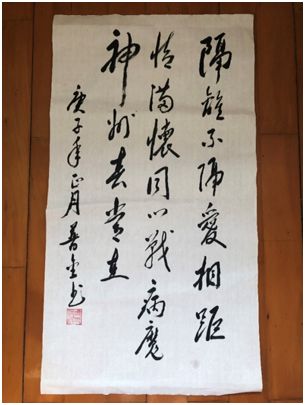 隔離不隔愛相距
情滿懷同心戰病魔
神州春常在
庚子年正月書